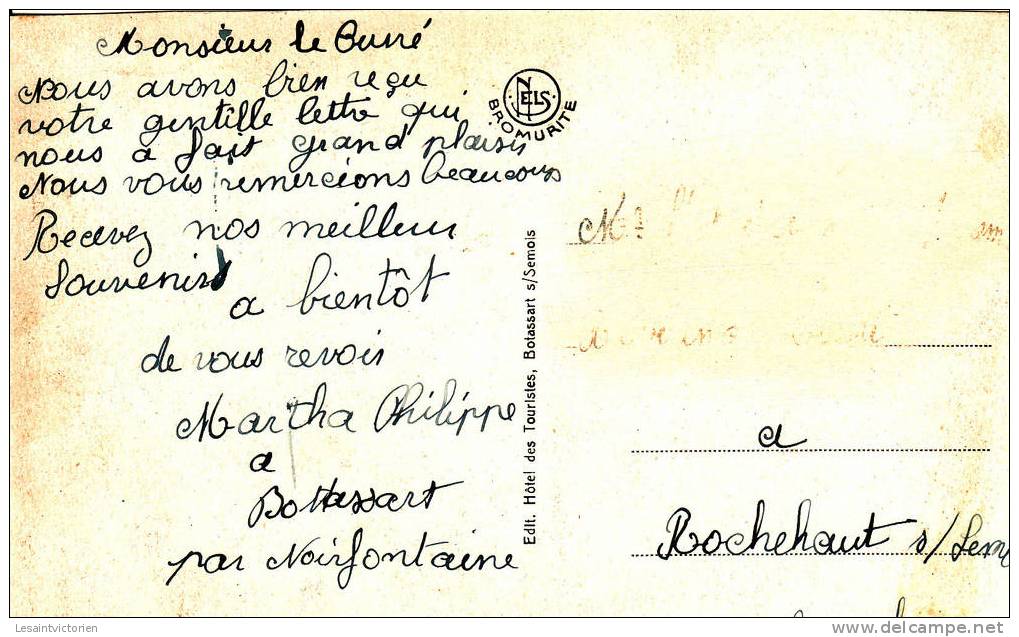 Monsieur le Curré
Nous avons bien reçu
votre gentille lettre qui
nous a fait grand plaisir
Nous vous remercions beaucoup
Recevez nos meilleur
Souvenirs
a bientôt
de vous revoir
Martha Philippe
a
Bottassart
par Noirfontaine
NELS
BROMURITE
Edit. Hôtel des Touristes, Botassart s/Semois
Mr
a
Rochehaut s/Sem
Lesaintvictorien
www.delcampe.net